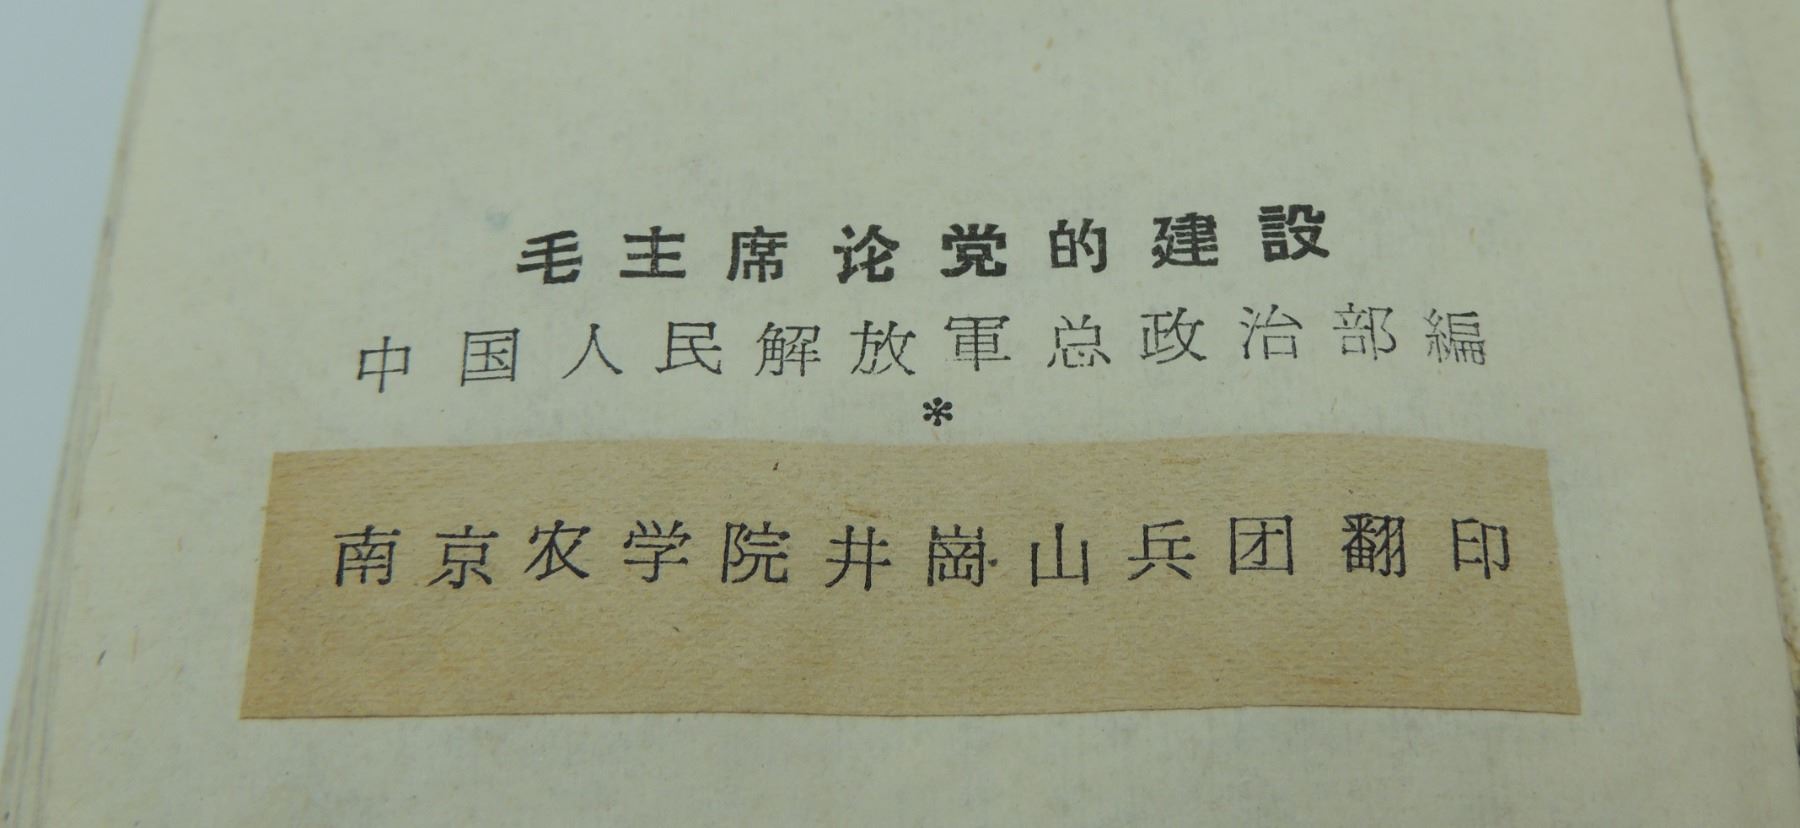 毛主席论党的建設
中国人民解放軍总政治部編
*
南京农学院井崗山兵团翻印